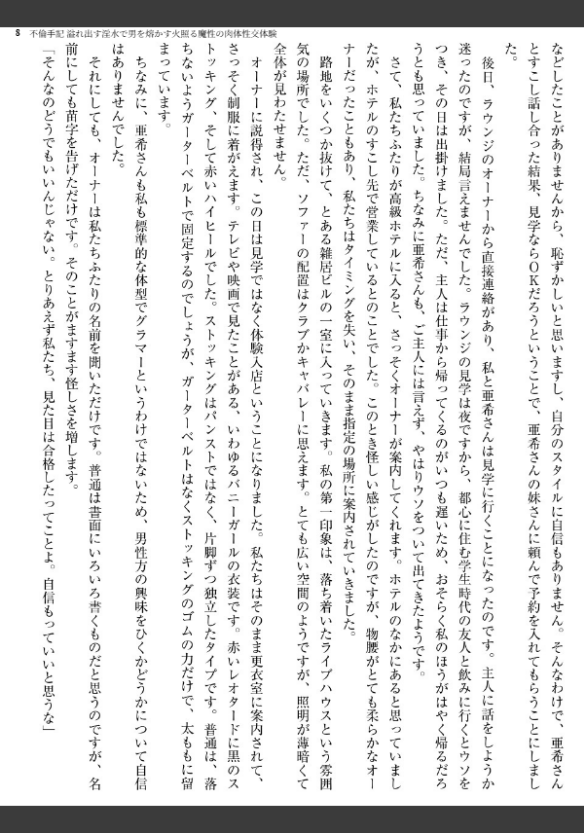 8 不倫手記 溢れ出す淫水で男を熔かす火照る魔性の肉体性交体験
などしたことがありませんから、恥ずかしいと思いますし、自分のスタイルに自信もありません。そんなわけで、亜希さん
とすこし話し合った結果、見学ならOKだろうということで、亜希さんの妹さんに頼んで予約を入れてもらうことにしまし
た。
後日、ラウンジのオーナーから直接連絡があり、私と亜希さんは見学に行くことになったのです。主人に話をしようか
迷ったのですが、結局言えませんでした。ラウンジの見学は夜ですから、都心に住む学生時代の友人と飲みに行くとウソを
つき、その日は出掛けました。ただ、主人は仕事から帰ってくるのがいつも遅いため、おそらく私のほうがはやく帰るだろ
うとも思っていました。ちなみに亜希さんも、ご主人には言えず、やはりウソをついて出てきたようです。
さて、私たちふたりが高級ホテルに入ると、さっそくオーナーが案内してくれます。ホテルのなかにあると思っていまし
たが、ホテルのすこし先で営業しているとのことでした。このとき怪しい感じがしたのですが、物腰がとても柔らかなオー
ナーだったこともあり、私たちはタイミングを失い、そのまま指定の場所に案内されていきました。
路地をいくつか抜けて、とある雑居ビルの一室に入っていきます。私の第一印象は、落ち着いたライブハウスという雰囲
気の場所でした。ただ、ソファーの配置はクラブかキャバレーに思えます。とても広い空間のようですが、照明が薄暗くて
全体が見わたせません。
オーナーに説得され、この日は見学ではなく体験入店ということになりました。私たちはそのまま更衣室に案内されて、
さっそく制服に着がえます。テレビや映画で見たことがある、いわゆるバニーガールの衣装です。赤いレオタードに黒のス
トッキング、そして赤いハイヒールでした。ストッキングはパンストではなく、片脚ずつ独立したタイプです。普通は、落
ちないようガーターベルトで固定するのでしょうが、ガーターベルトはなくストッキングのゴムの力だけで、太ももに留
まっています。
ちなみに、亜希さんも私も標準的な体型でグラマーというわけではないため、男性方の興味をひくかどうかについて自信
はありませんでした。
それにしても、オーナーは私たちふたりの名前を聞いただけです。普通は書面にいろいろ書くものだと思うのですが、名
前にしても苗字を告げただけです。そのことがますます怪しさを増します。
「そんなのどうでもいいんじゃない。とりあえず私たち、見た目は合格したってことよ。自信もっていいと思うな」